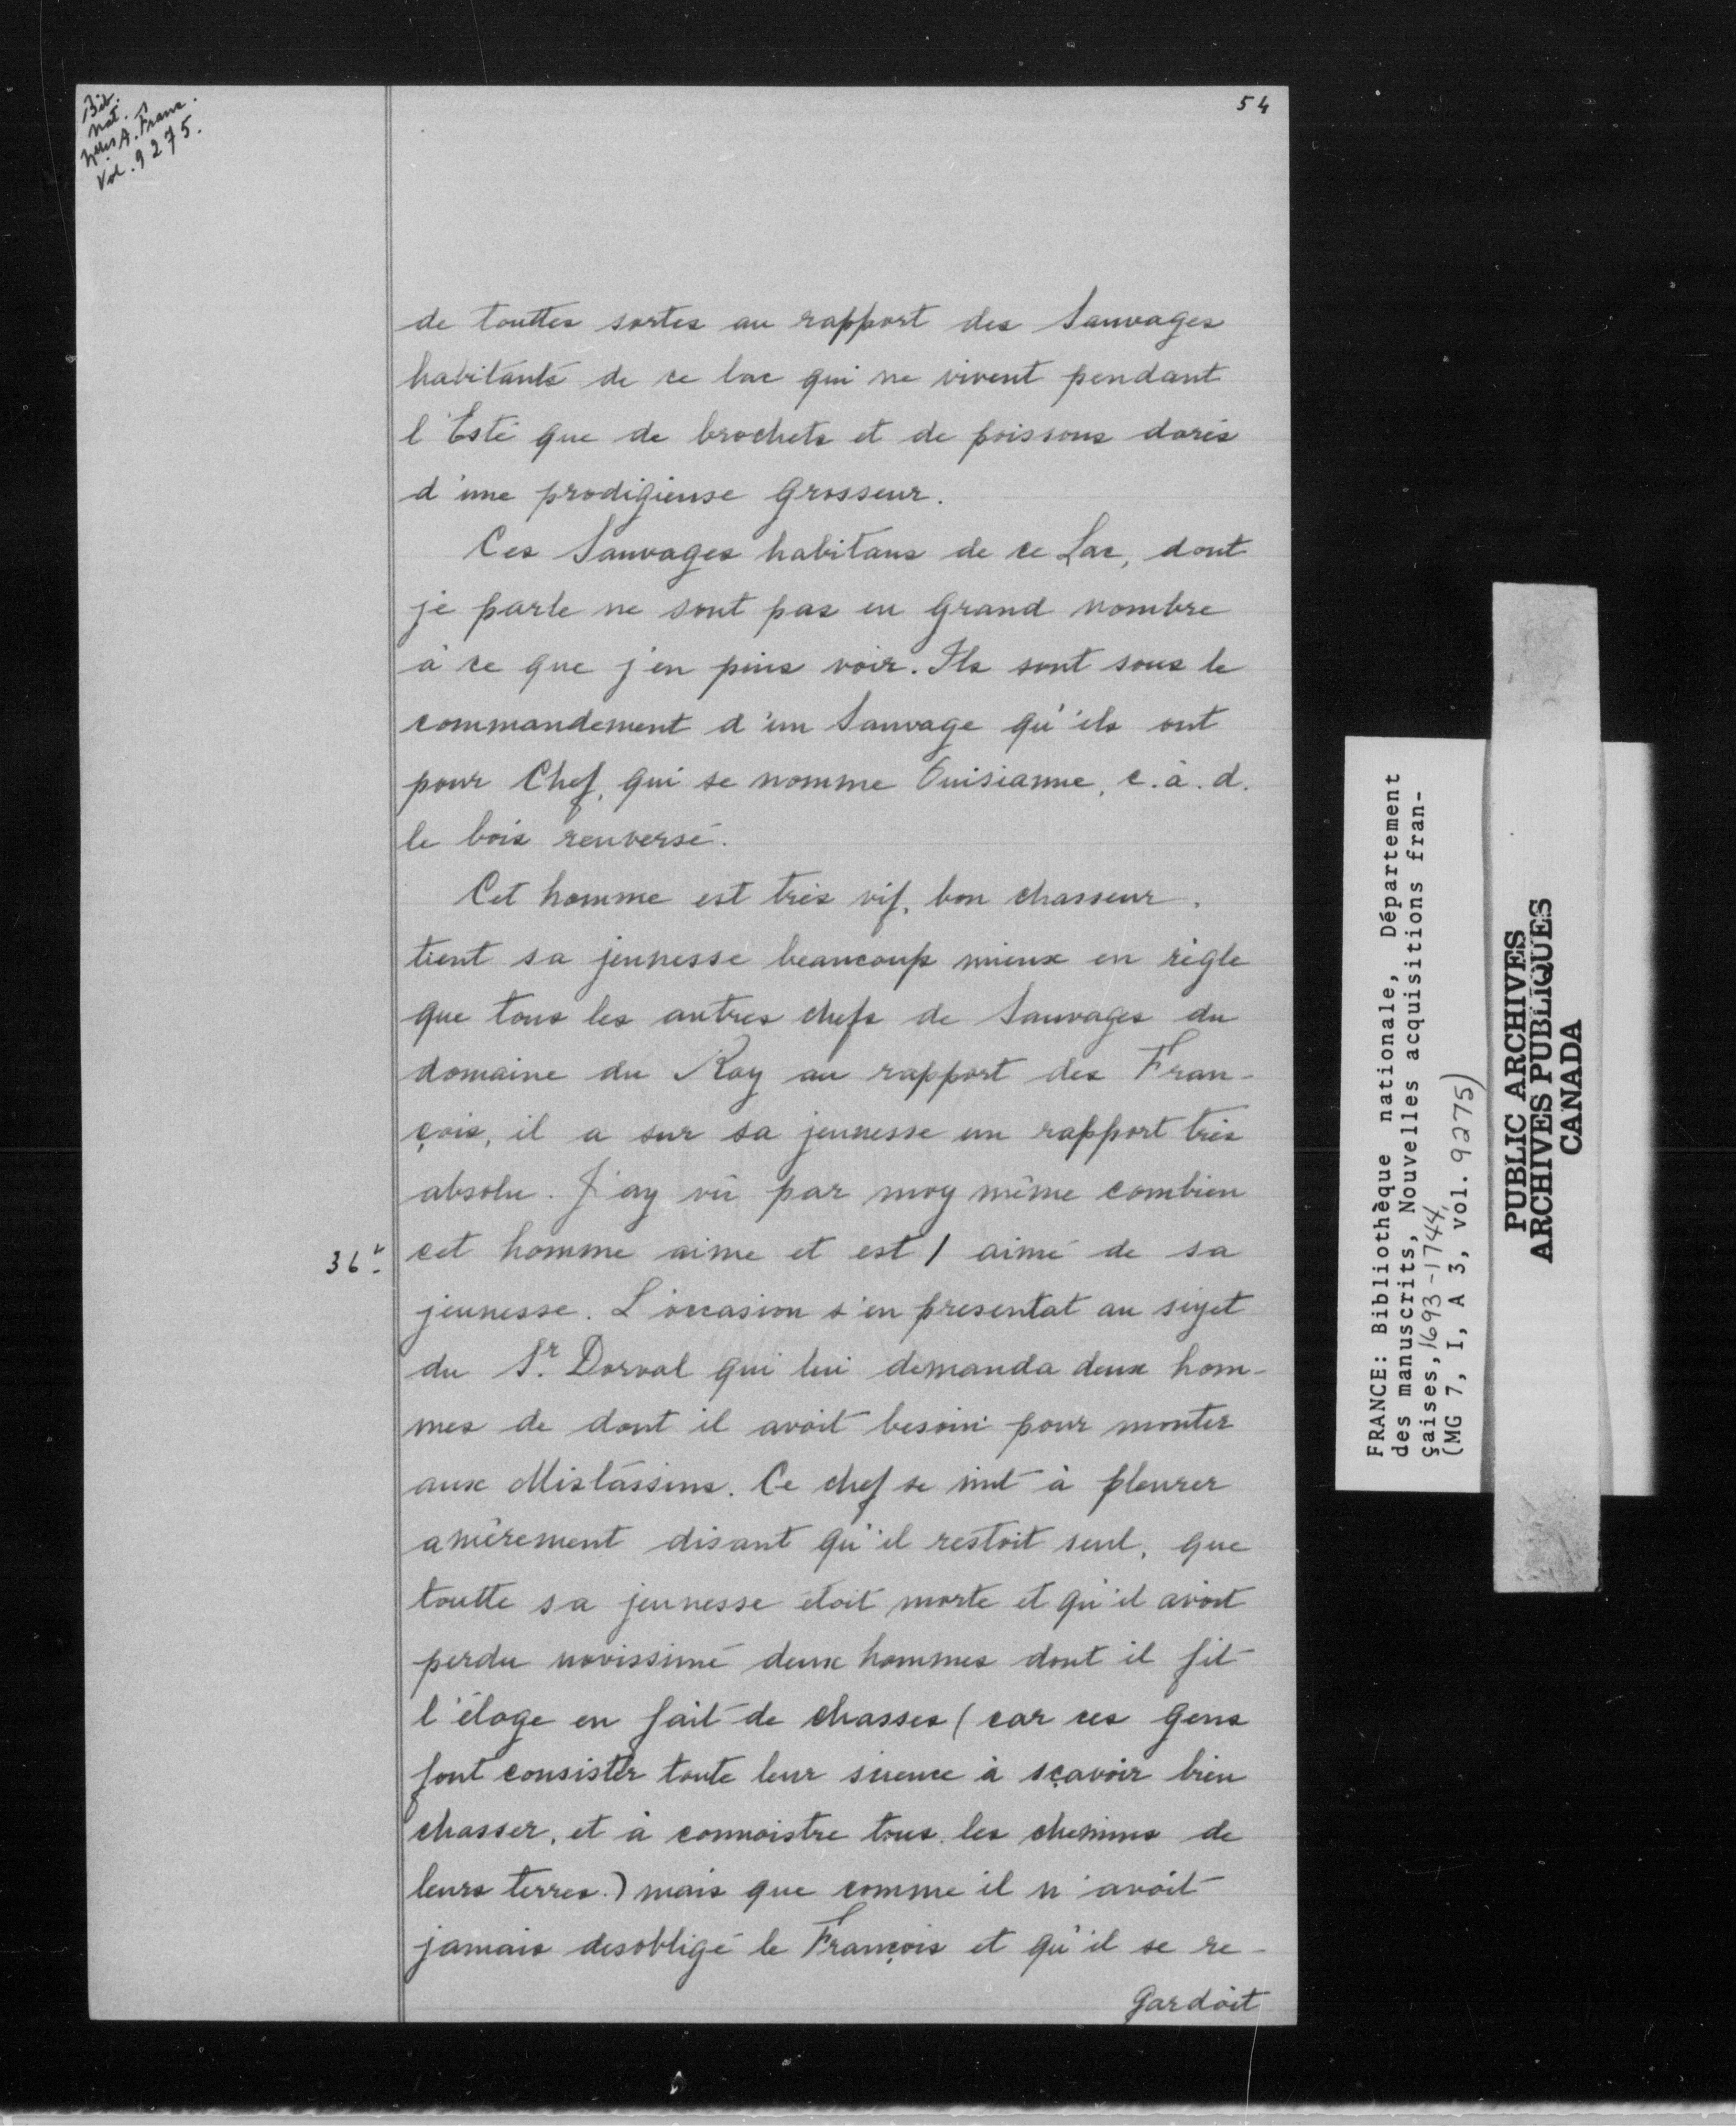 Bib.
nat.
Nelles A. Franc.
Vol. 9275.
54
de touttes sortes au rapport des Sauvages
habitants de ce lac qui ne vivent pendant
l'Esté que de brochets et de poissons dorés
d'une prodigieuse grosseur.
Ces Sauvages habitans de ce Lac, dont
je parle ne sont pas en grand nombre
à ce que j'en puis voir. Ils sont sous le
commandement d'un Sauvage qu'ils ont
pour Chef, qui se nomme Ouisianne, c.à.d.
le bois renversé.
Cet homme est très vif, bon chasseur,
tient sa jeunesse beaucoup mieux en règle
que tous les autres chefs de Sauvages du
domaine du Roy au rapport des Fran-
çois, il a sur sa jeunesse un rapport très
absolu. J'ay vû par moy même combien
36v
cet homme aime et est / aimé de sa
jeunesse. L'occasion s'en presentat au sujet
du Sr. Dorval qui lui demanda deux hom-
mes de dont il avoit besoin pour monter
aux Mistassins. Ce chef se mit à pleurer
amèrement disant qu'il restoit seul, que
toutte sa jeunesse étoit morte et qu'il avoit
perdu novissimé deux hommes dont il fit
l'éloge en fait de chasses (car ces gens
font consister toute leur sience à sçavoir bien
chasser, et à connoistre tous les chemins de
leurs terres.) mais que comme il n'avoit
jamais desobligé le François et qu'il se re-
gardoit
FRANCE: Bibliothèque nationale, Département
des manuscrits, Nouvelles acquisitions fran-
çaises, 1693-1744,
(MG 7, I, A 3, vol. 9275)
PUBLIC ARCHIVES
ARCHIVES PUBLIQUES
CANADA